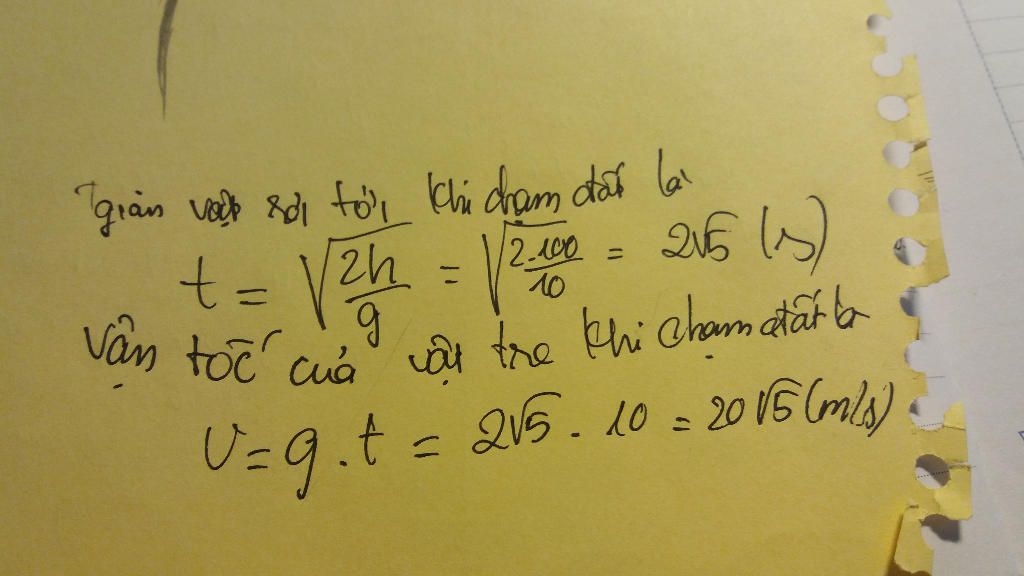 Tgian vật rơi tới khi chạm đất là
t = √(2h/g) = √(2.100/10) = 2√5 (s)
Vận tốc của vật tre khi chạm đất là
v = g . t = 2√5 . 10 = 20√5 (m/s)